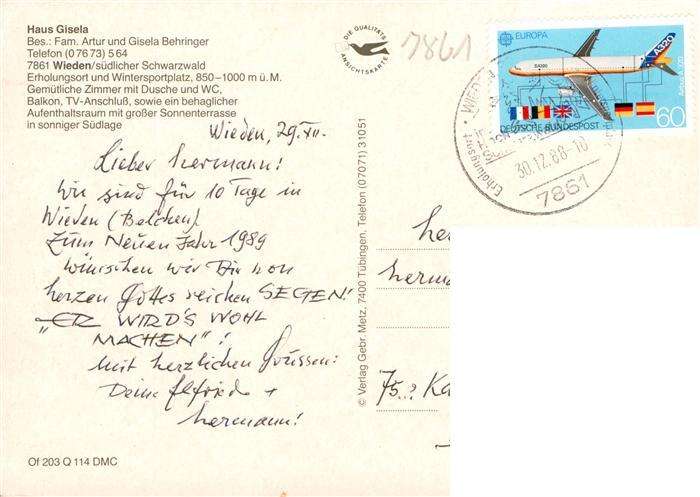 Haus Gisela
Bes.: Fam. Artur und Gisela Behringer
Telefon (0 76 73) 5 64
7861 Wieden/südlicher Schwarzwald
Erholungsort und Wintersportplatz, 850–1000 m ü. M.
Gemütliche Zimmer mit Dusche und WC,
Balkon, TV-Anschluß, sowie ein behaglicher
Aufenthaltsraum mit großer Sonnenterrasse
in sonniger Südlage
Wieden, 29.XII.
Lieber Hermann!
Wir sind für 10 Tage in
Wieden (Belchen)
Zum Neuen Jahr 1989
wünschen wir Dir von
Herzen Gottes reichen SEGEN!
„ER WIRD'S WOHL
MACHEN"!
Mit herzlichen Grüssen:
Deine Elfriede +
Hermann!
Of 203 Q 114 DMC
DIE QUALITÄTS
ANSICHTSKARTE
© Verlag Gebr. Metz, 7400 Tübingen, Telefon (07071) 31051
7861
EUROPA
A320
Airbus A320
DEUTSCHE BUNDESPOST
60
Erholungsort
30.12.88-10
7861
He
Herman
75.. Ka